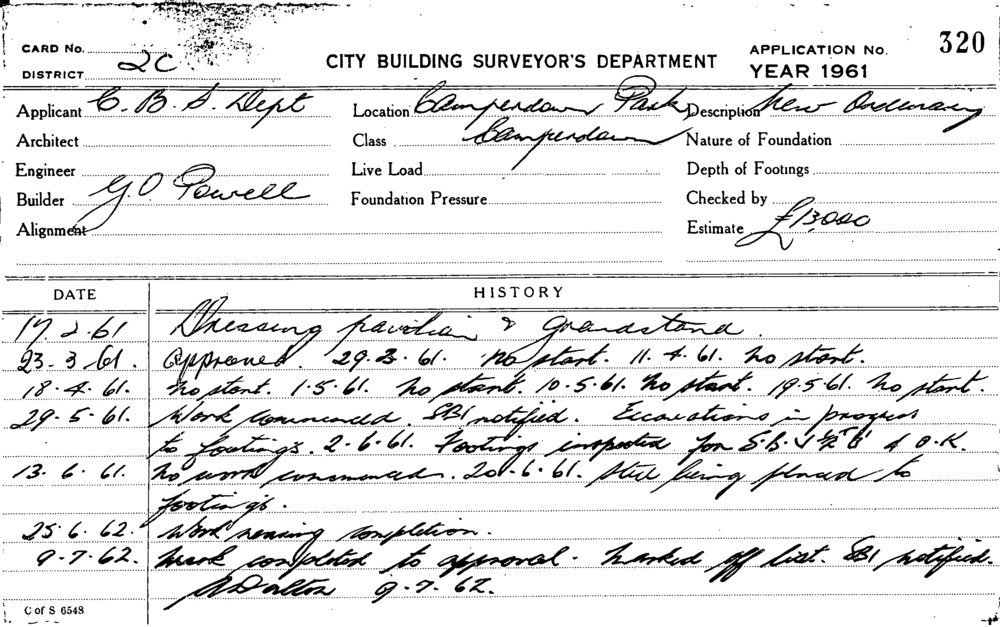 CARD No.
DISTRICT 2C
CITY BUILDING SURVEYOR'S DEPARTMENT
APPLICATION No. 320
YEAR 1961
Applicant C. B. S. Dept
Location Camperdown Park
Description New Ordinary
Architect
Class Camperdown
Nature of Foundation
Engineer
Live Load
Depth of Footings
Builder G. O. Powell
Foundation Pressure
Checked by
Alignment
Estimate £13,000
DATE HISTORY
17.2.61 Dressing pavilion & Grandstand.
23.3.61. Approved. 29.3.61. No start. 11.4.61. No start.
18.4.61. No start. 1.5.61. No start. 10.5.61. No start. 19.5.61. No start.
29.5.61. Work commenced. SBI notified. Excavations in progress
to footings. 2.6.61. Footings inspected for S.B. & O.K.
13.6.61. No work commenced. 20.6.61. Steel being placed to
footings.
25.6.62. Work nearing completion.
9.7.62. Work completed to approval. Marked off list. SBI notified.
ADalton 9.7.62.
C of S 6548